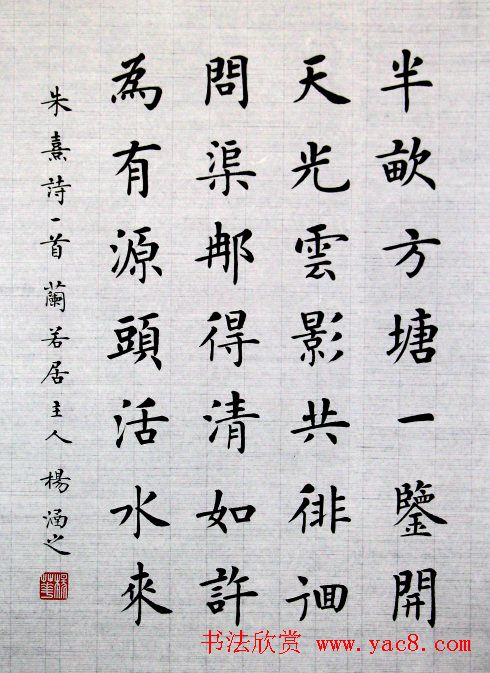 半畝方塘一鑒開
天光雲影共徘徊
問渠那得清如許
為有源頭活水來
朱熹詩一首 蘭若居主人 楊涵之
书法欣赏 www.yac8.com